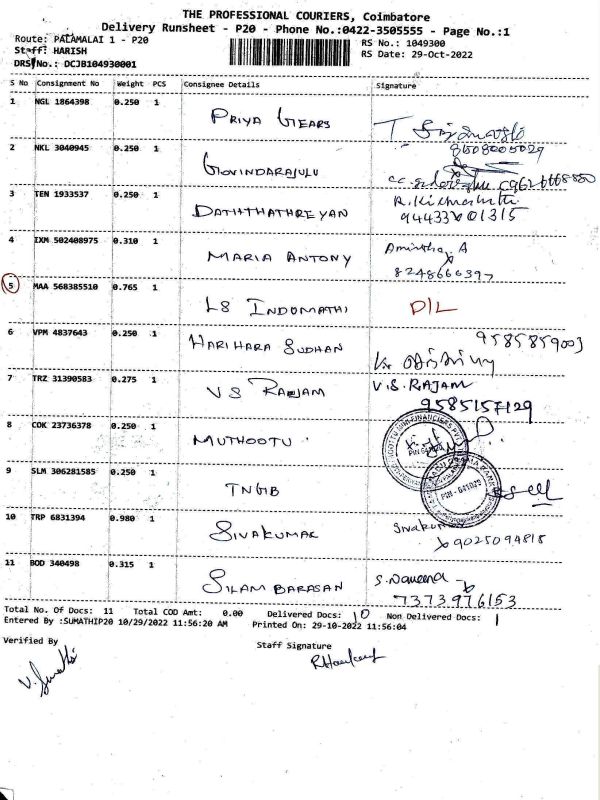 THE PROFESSIONAL COURIERS, Coimbatore
Delivery Runsheet - P20 - Phone No.:0422-3505555 - Page No.:1
Route: PALAMALAI 1 - P20
RS No.: 1049300
Staff: HARISH
RS Date: 29-Oct-2022
DRS No.: DCJB104930001
S No Consignment No Weight PCS Consignee Details Signature
1 NGL 1864398 0.250 1 PRIYA GEARS T
2 NKL 3040945 0.250 1 GOVINDARAJULU
3 TEN 1933537 0.250 1 DATHTHATHREYAN
4 IXM 502408975 0.310 1 MARIA ANTONY Amirtha A
8248666397
5 MAA 568385510 0.765 1 LS INDUMATHI D/L
6 VPM 4837643 0.250 1 HARIHARA SUDHAN 9585859003
7 TRZ 31390583 0.275 1 VS RAJAM V.S. RAJAM
9585157129
8 COK 23736378 0.250 1 MUTHOOTU
9 SLM 306281585 0.250 1 TNGB
10 TRP 6831394 0.980 1 SIVAKUMAR Sivakumar
9025094815
11 BOD 340498 0.315 1 SILAMBARASAN S. Naveena
7373976153
Total No. Of Docs: 11 Total COD Amt: 0.00 Delivered Docs: 10 Non Delivered Docs: 1
Entered By :SUMATHIP20 10/29/2022 11:56:20 AM Printed On: 29-10-2022 11:56:04
Verified By
Staff Signature
V. Sumathi